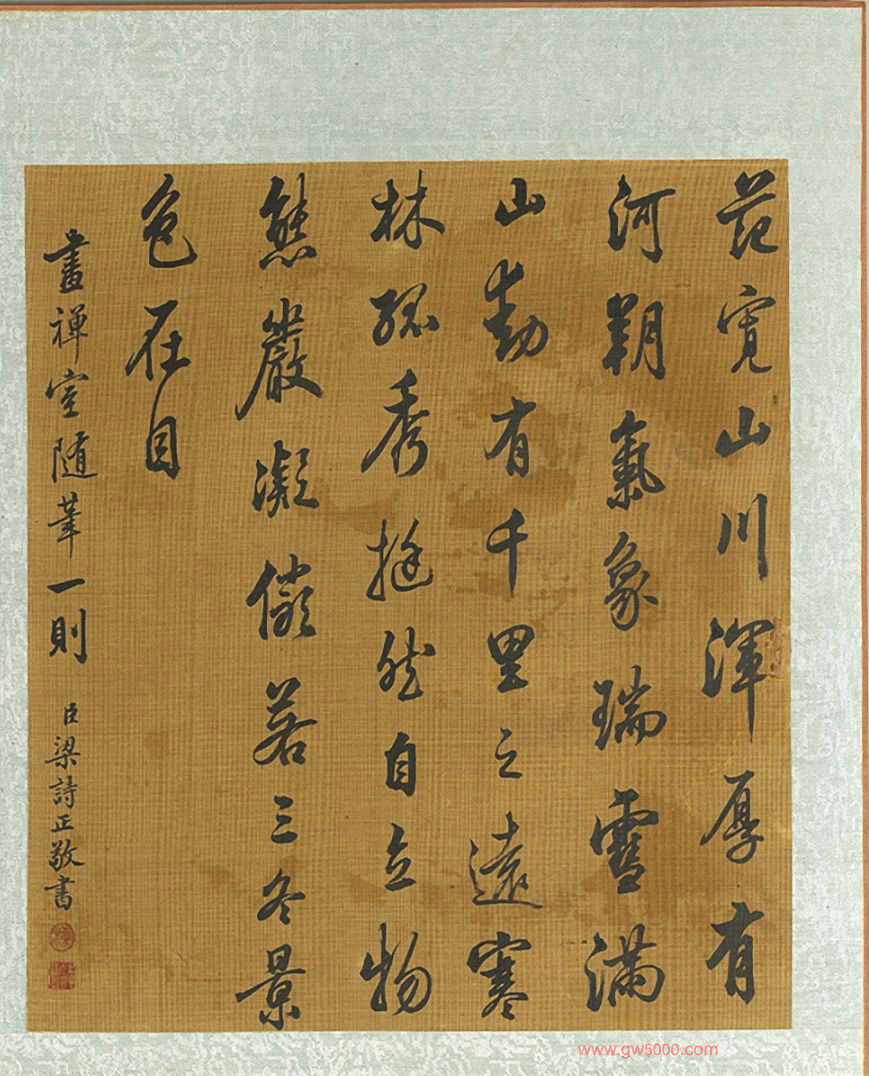 范寬山川渾厚有
河朔氣象瑞雪滿
山動有千里之遠寒
林孤秀挺然自立物
態嚴凝儼若三冬景
色在目
畫禪室隨筆一則
臣梁詩正敬書
www.gw5000.com